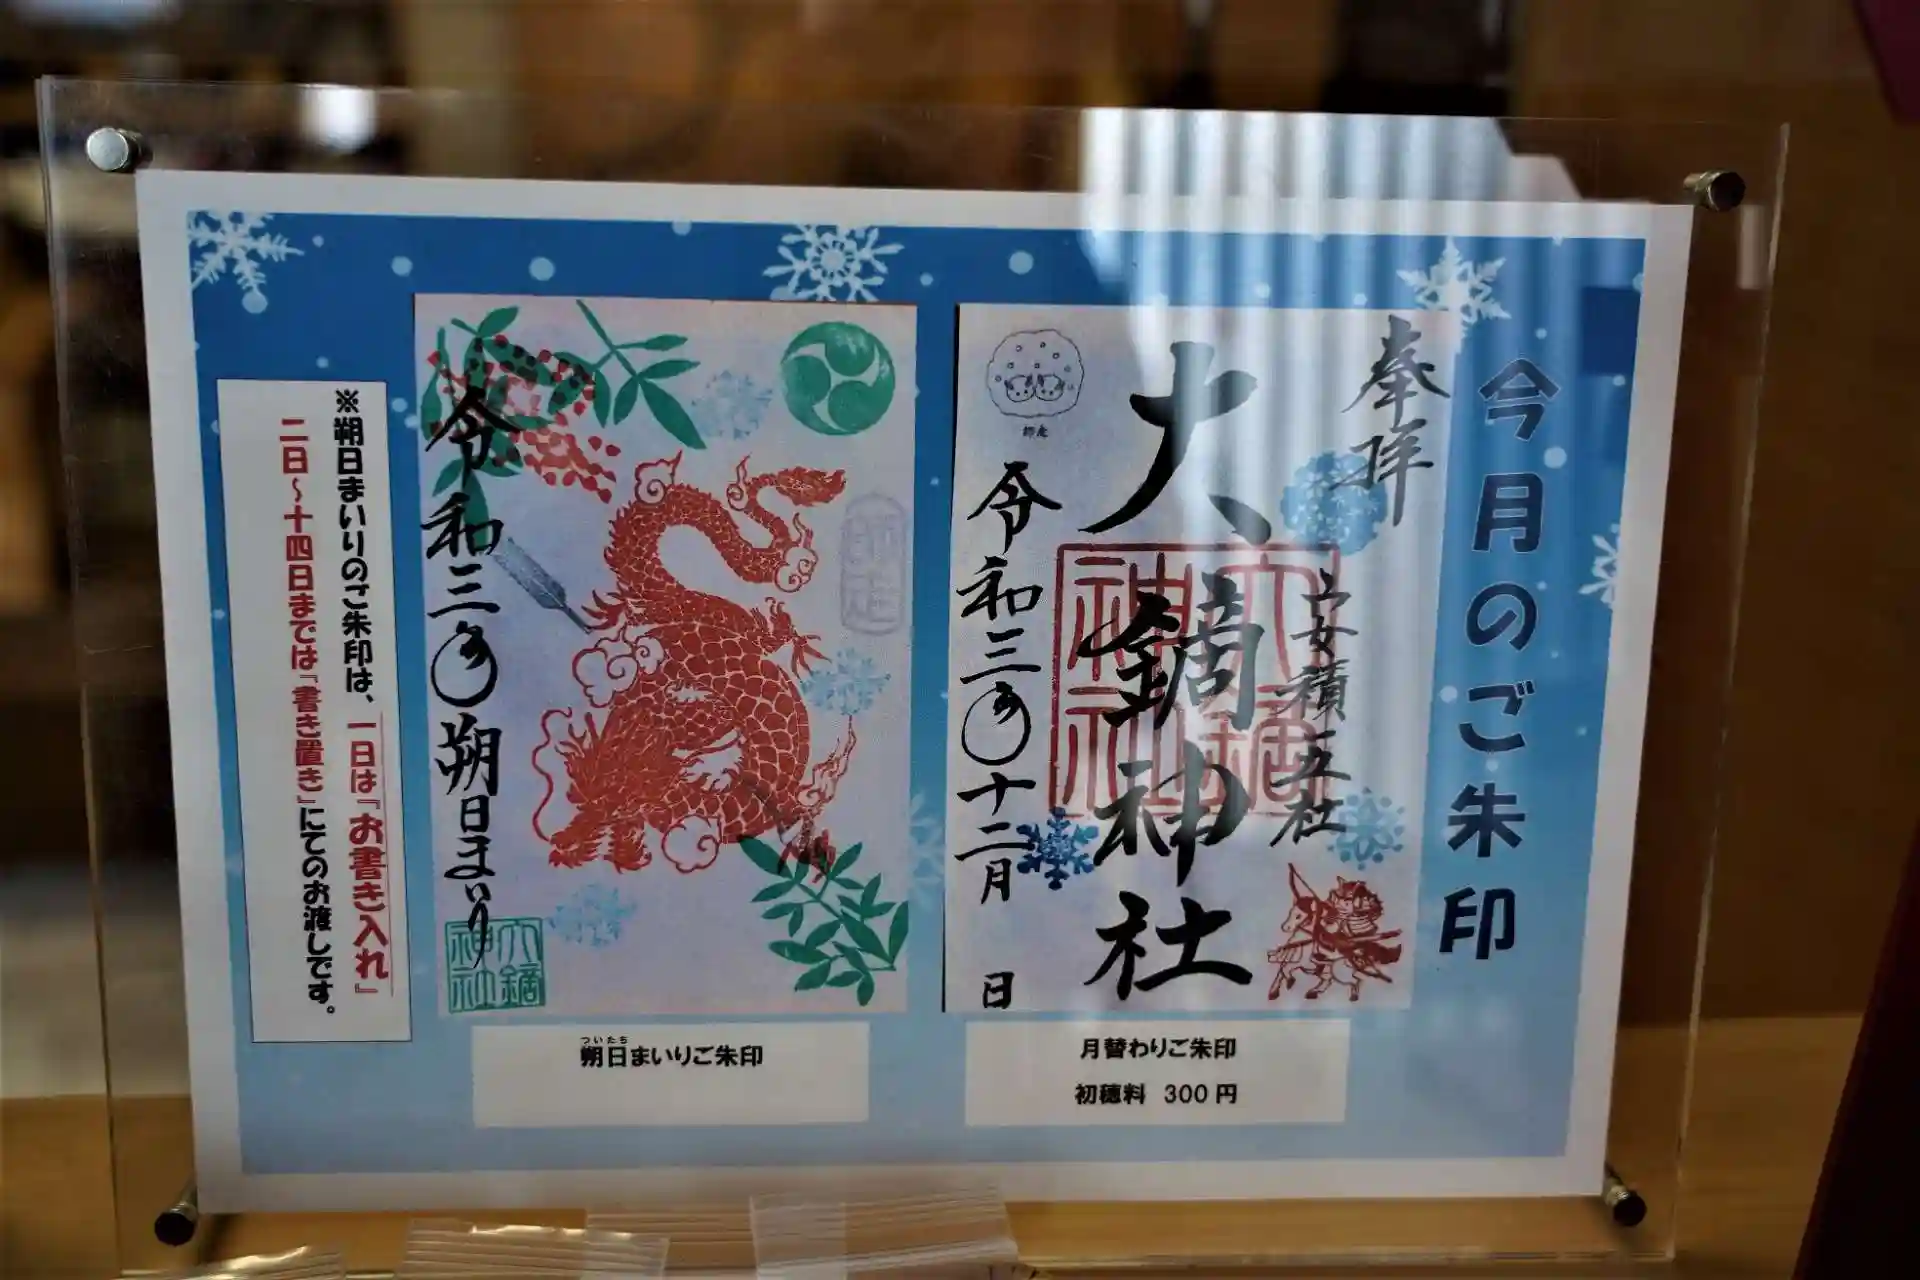 今月のご朱印
奉拝
宍女積五社
大鏑神社
令和三年十二月 日
師走
月替わりご朱印
初穂料 300円
令和三年朔日まいり
師走
大鏑神社
ついたち
朔日まいりご朱印
※朔日まいりのご朱印は、一日は『お書き入れ』
二日～十四日までは『書き置き』にてのお渡しです。